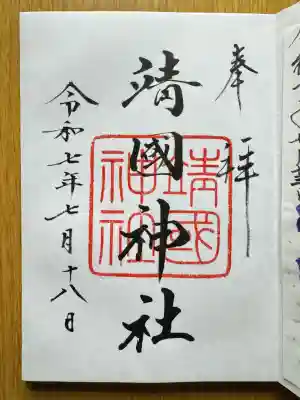 奉拝
靖國神社
靖國
神社
令和七年七月十八日